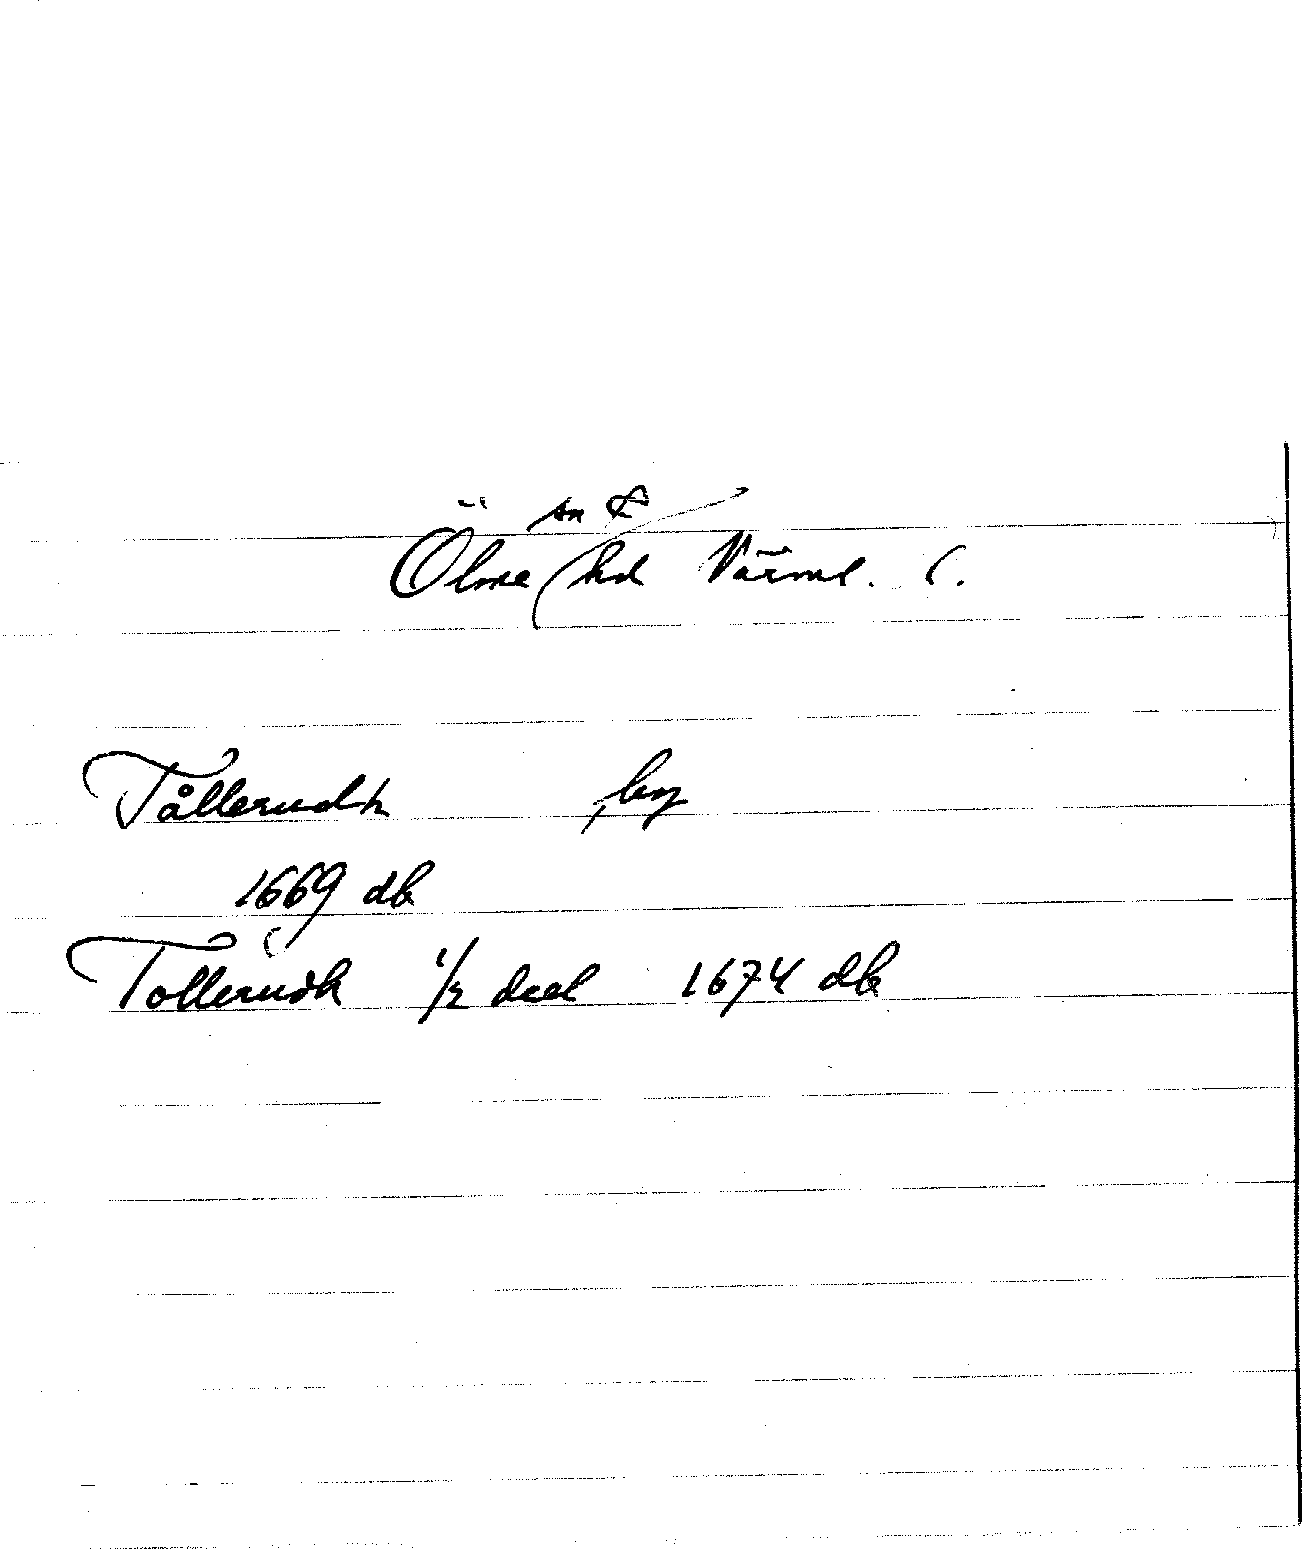 sn &
Ölme hd Värml. l.
Tållerudh by
1669 db
Tollerudh 1/2 deel 1674 db